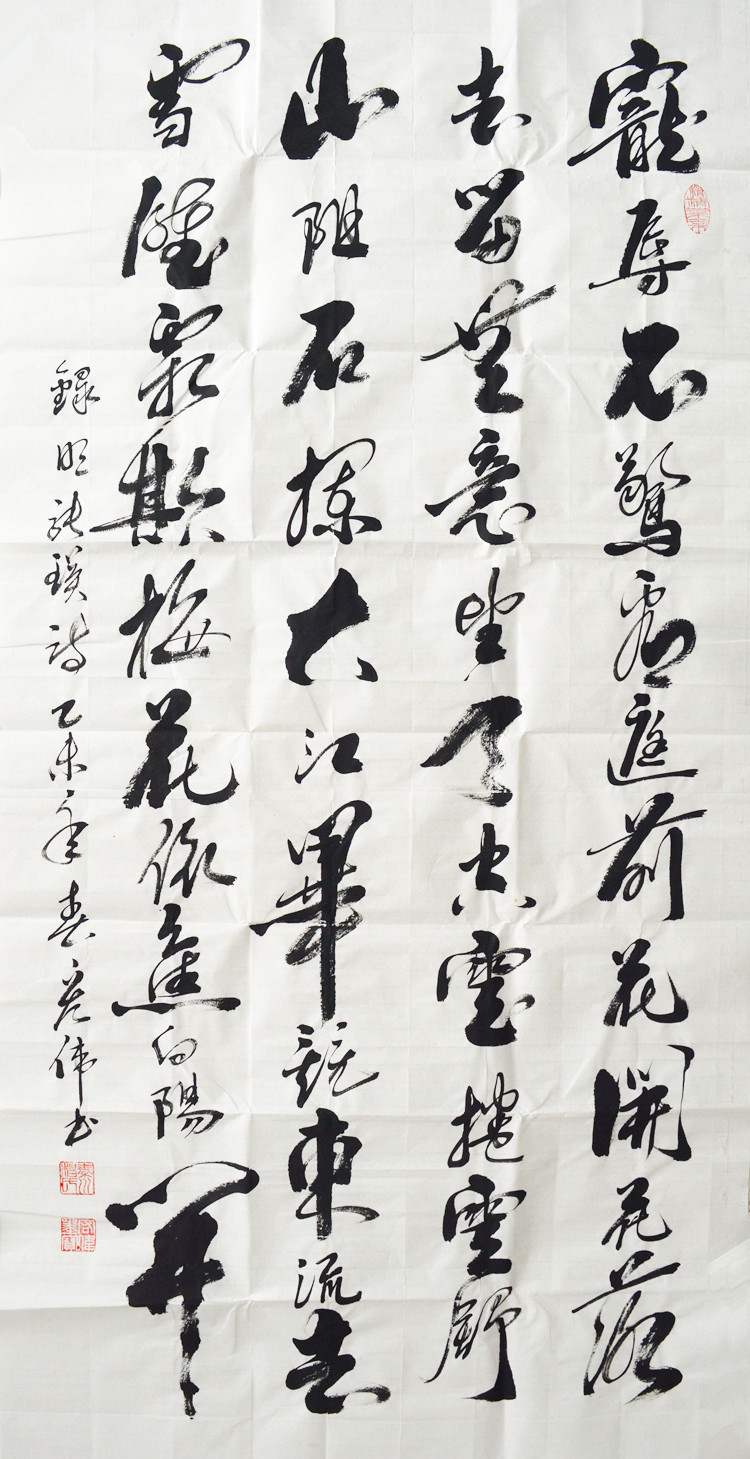 寵辱不驚看庭前花開花落
去留無意望天空雲捲雲舒
山阻石攔大江畢競東流去
雪壓霜欺梅花依舊向陽開
錄明張詩乙未年春彥伟书